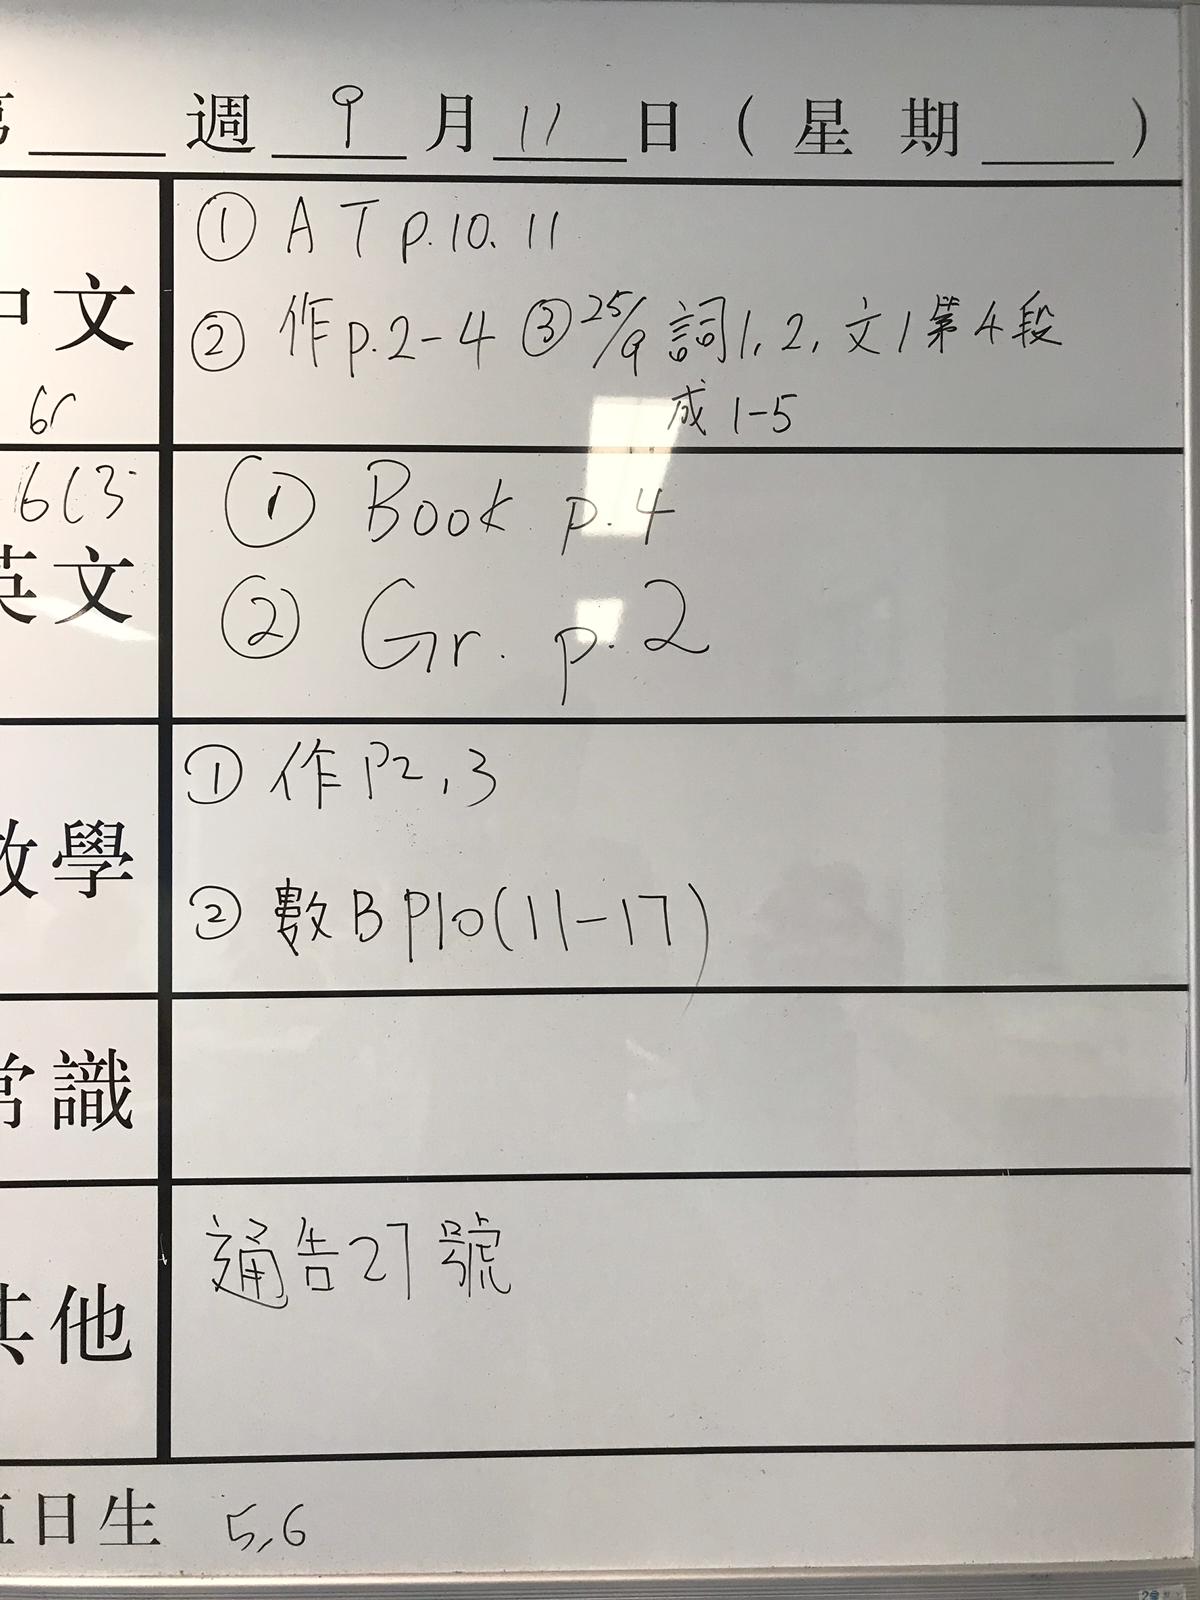 週 9 月 11 日 ( 星 期 )
中文
① A T p.10. 11
② 作 p.2-4 ③ 25/9 詞1, 2, 文1第4段
成 1-5
英文
① Book p.4
② Gr. p.2
數學
① 作 P2,3
② 數B P10(11-17)
常識
其他
通告27號
值日生 5,6